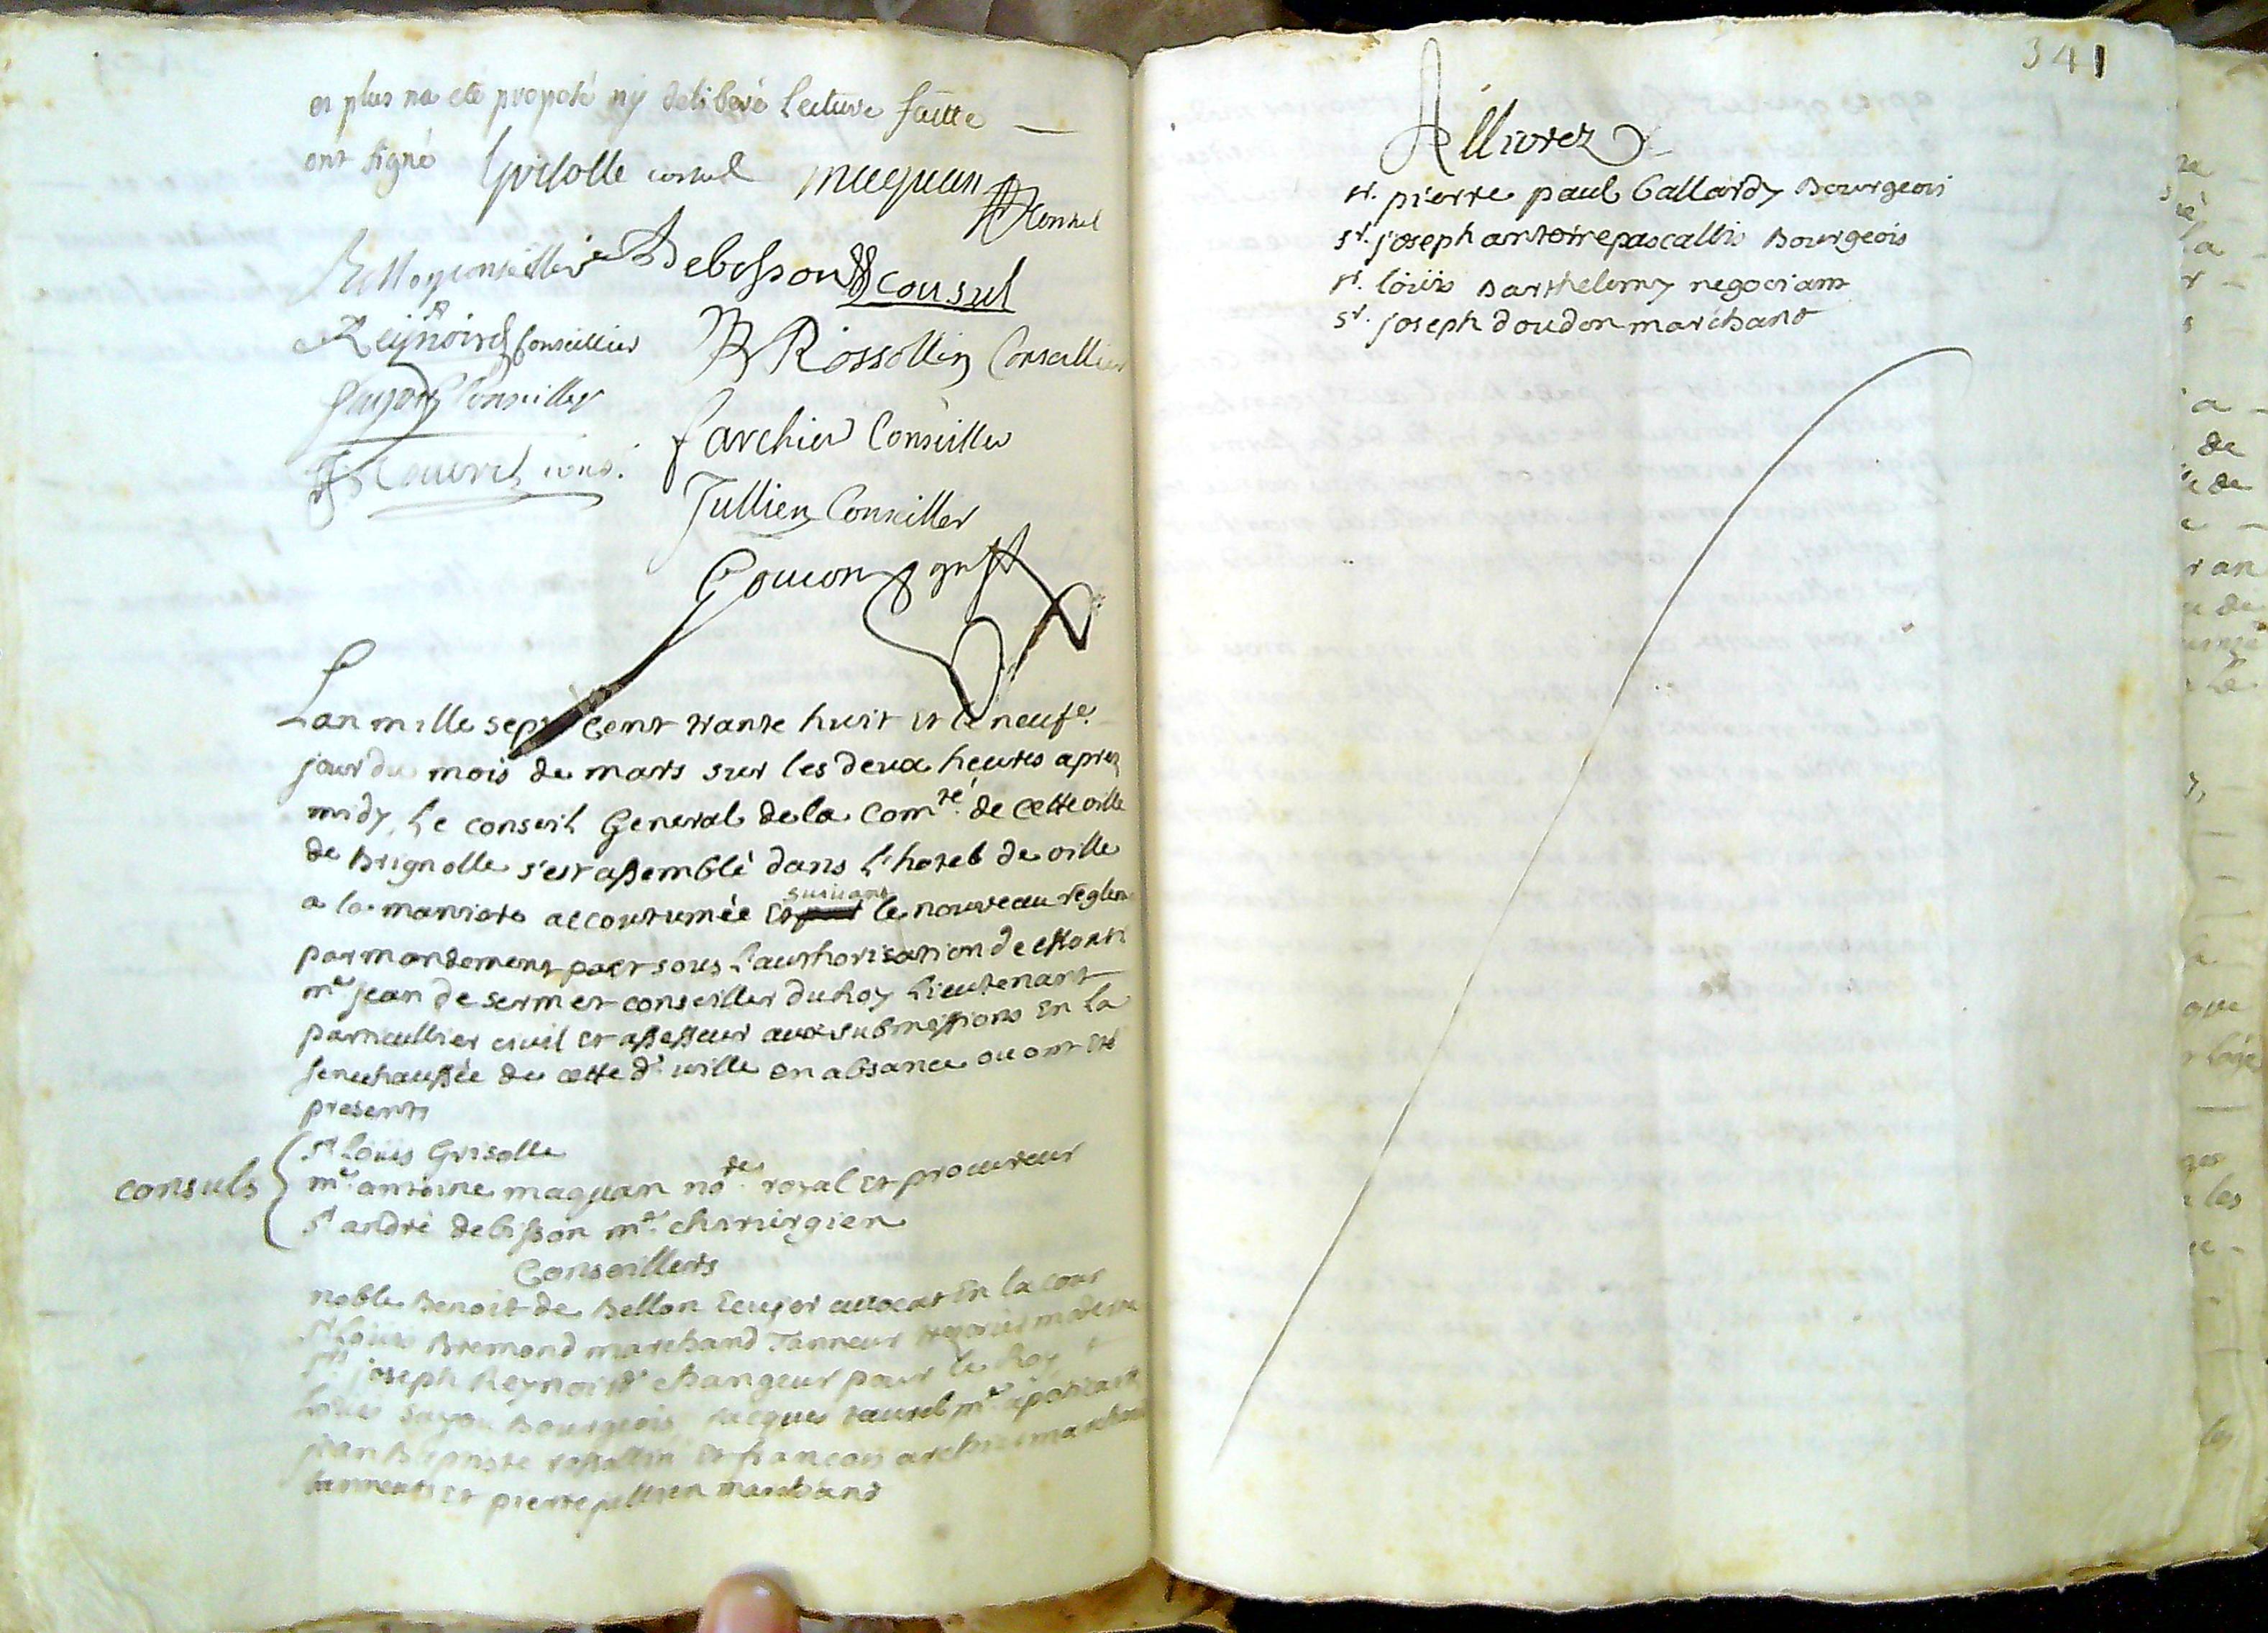 et plus na eté proposé ny deliberé Lecture faitte
ont signé Grisolle consul maquan consul
conseiller Debesson consul
Reijnoird Conseillier JB Rossollin Conseillier
Conseiller
farchier Conseiller
Taurel cons.
Jullien Conseiller
Goujon greff
Lan mille sept Cent trante huit et le neufe.
jour du mois de mars sur les deux heures apres
midy, Le conseil General de la Comté. de Cette ville
de Brignolle s'est assemblé dans L'hotel de ville
a la maniere accoutumée Et suivant le nouveau reglem
par mandement et sous L'authorisation de
me jean de sermet conseiller du Roy Lieutenant
particullier civil et assesseur aux submissions En La
senechaussée de cette de. ville en absance ou ont eté
presents
consuls
sr Loüis Grisolle
me. antoine maquan nore. royal et procureur
sr andré debisson me. chirurgien
Conseillers
noble Benoit de Bellon Ecuyer avocat En la cour
sr Loüis Bremond marchand Tanneur moderne
srs joseph Reynoird changeur pour le Roy
Loüis sayou Bourgeois jacques taurel me apoticaire
jean Baptiste rossollin et francois archier marchand
tanneurs et pierre jullien marchand
341
Allivrez
sr. pierre paul Gallardy Bourgeois
sr. joseph antoire pascallis Bourgeois
sr. loüis Barthelemy negociant
sr. joseph doudon marchand